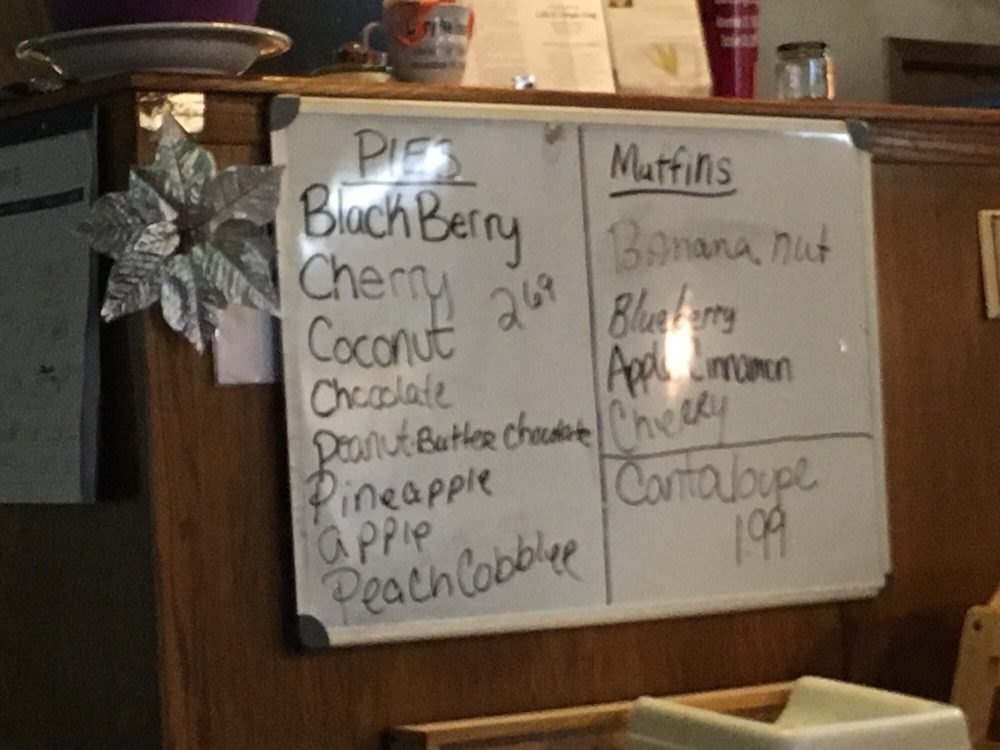 PIES
BlackBerry
Cherry
2 69
Coconut
Chocolate
Peanut Butter Chocolate
Pineapple
apple
Peach Cobbler
Muffins
Banana nut
Blueberry
Apple Cinnamon
Cherry
Cantaloupe
1.99